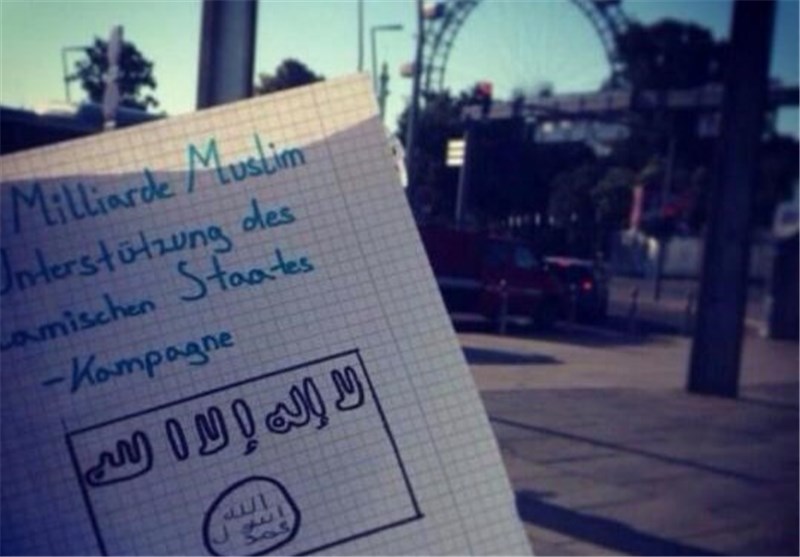 Milliarde Muslim
Unterstützung des
lamischen Staates
-Kampagne
لا إله إلا الله
الله
رسول
محمد